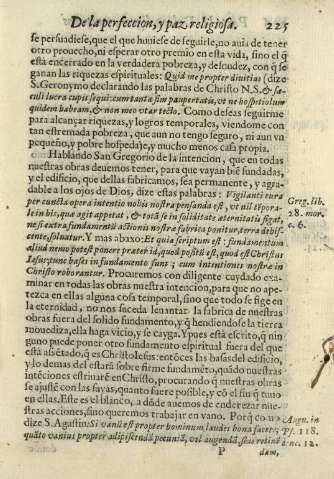 De la perfeccion, y paz religiosa. 225
se persuadiesse, que el que huuiese de seguirle, no auia de tener
otro prouecho, ni esperar otro premio en esta vida, sino el q̃
está encerrado en la verdadera pobreza, y desnudez, con q̃ se
ganan las riquezas espirituales: Quid me propter diuitias (dize
S. Geronymo declarando las palabras de Christo N. S. & sæ-
culi lucra cupis sequi: cum tanta sim paupertatis, vt ne hospitiolum
quidem habeam, & non meo vtar tecto. Como deseas seguirme
para alcançar riquezas, y logros temporales, viendome con
tan estremada pobreza, que aun no tengo seguro, ni aun vn
pequeño, y pobre hospedaje, y mucho menos casa propia.
Hablando San Gregorio de la intencion, que en todas
nuestras obras deuemos tener, para que vayan biẽ fundadas,
y el edificio, que dellas fabricamos, sea permanente, y agra-
dable a los ojos de Dios, dize estas palabras: Vigilanti cura
per cuncta opera intentio nobis nostra pensanda est, vt nil tẽpora-
le in his, quæ agit appetat, & tota se in soliditate æternitatis figat,
nesi extra fundamentũ actionis nostræ fabrica ponitur, terra dehis-
cente, soluatur. Y mas abaxo: Et quia scriptum est: fundamentum
aliud nemo potest ponere præter id, quod positũ est, quod est Christus
Iesus; tunc bases in fundamento sunt; cum intentiones nostræ in
Christo roborantur. Procuremos con diligente cuydado exa-
minar en todas las obras nuestra intencion, para que no ape-
tezca en ellas alguna cosa temporal, sino que todo se fige en
la eternidad, no nos suceda leuantar la fabrica de nuestras
obras fuera del solido fundamento, y q̃ hendiendose la tierra
mouediza, ella haga vicio, y se cayga. Y pues está escrito, q̃ nin
guno puede poner otro fundamento espiritual fuera del que
está asẽtado, q̃ es Christo Iesus: entõces las basas del edificio,
y lo demas del estará sobre firme fundamẽto, quãdo nuestras
intẽciones estriuarẽ en Christo, procurando q̃ nuestras obras
se ajustẽ con las suyas, quanto fuere posible, y cõ el fin q̃ tuuo
en ellas. Este es el blanco, a dõde auemos de enderezar nue-
stras acciones, sino queremos trabajar en vano. Porq̃ como
dize S. Agustin: Si vanũ est propter hominum laudes bona facere;
quãto vanius propter adipiscendã pecuniã, vel augendã, seu retinẽ
P dam,
Greg. lib.
28. mor.
c. 6.
Aug. in
Ps. 118.
conc. 12.